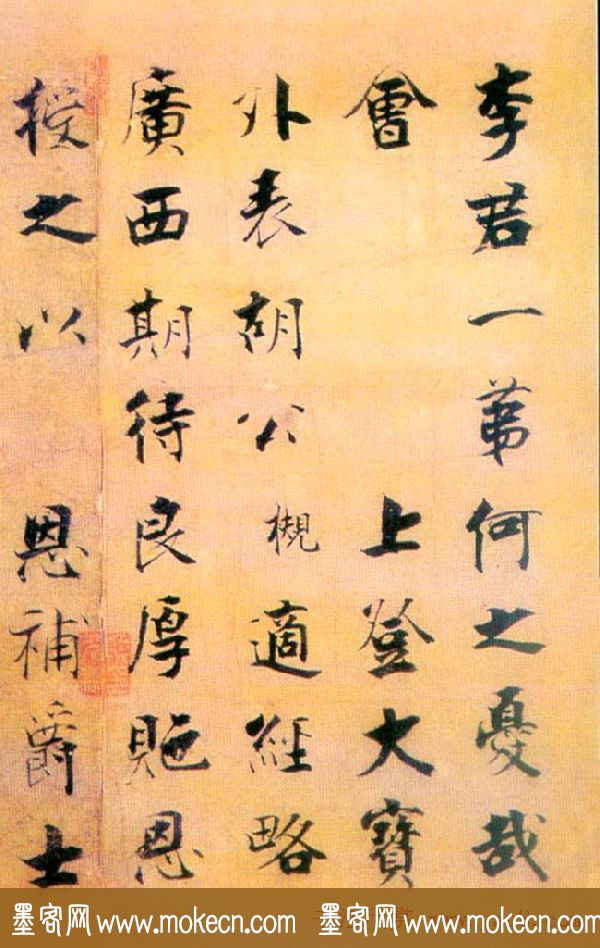 李君一苐何之憂哉
會上登大寶
外表胡公槻適經略
廣西期待良厚貤恩
授之以恩補爵士
墨客网www.mokecn.com
墨客网www.mokecn.com